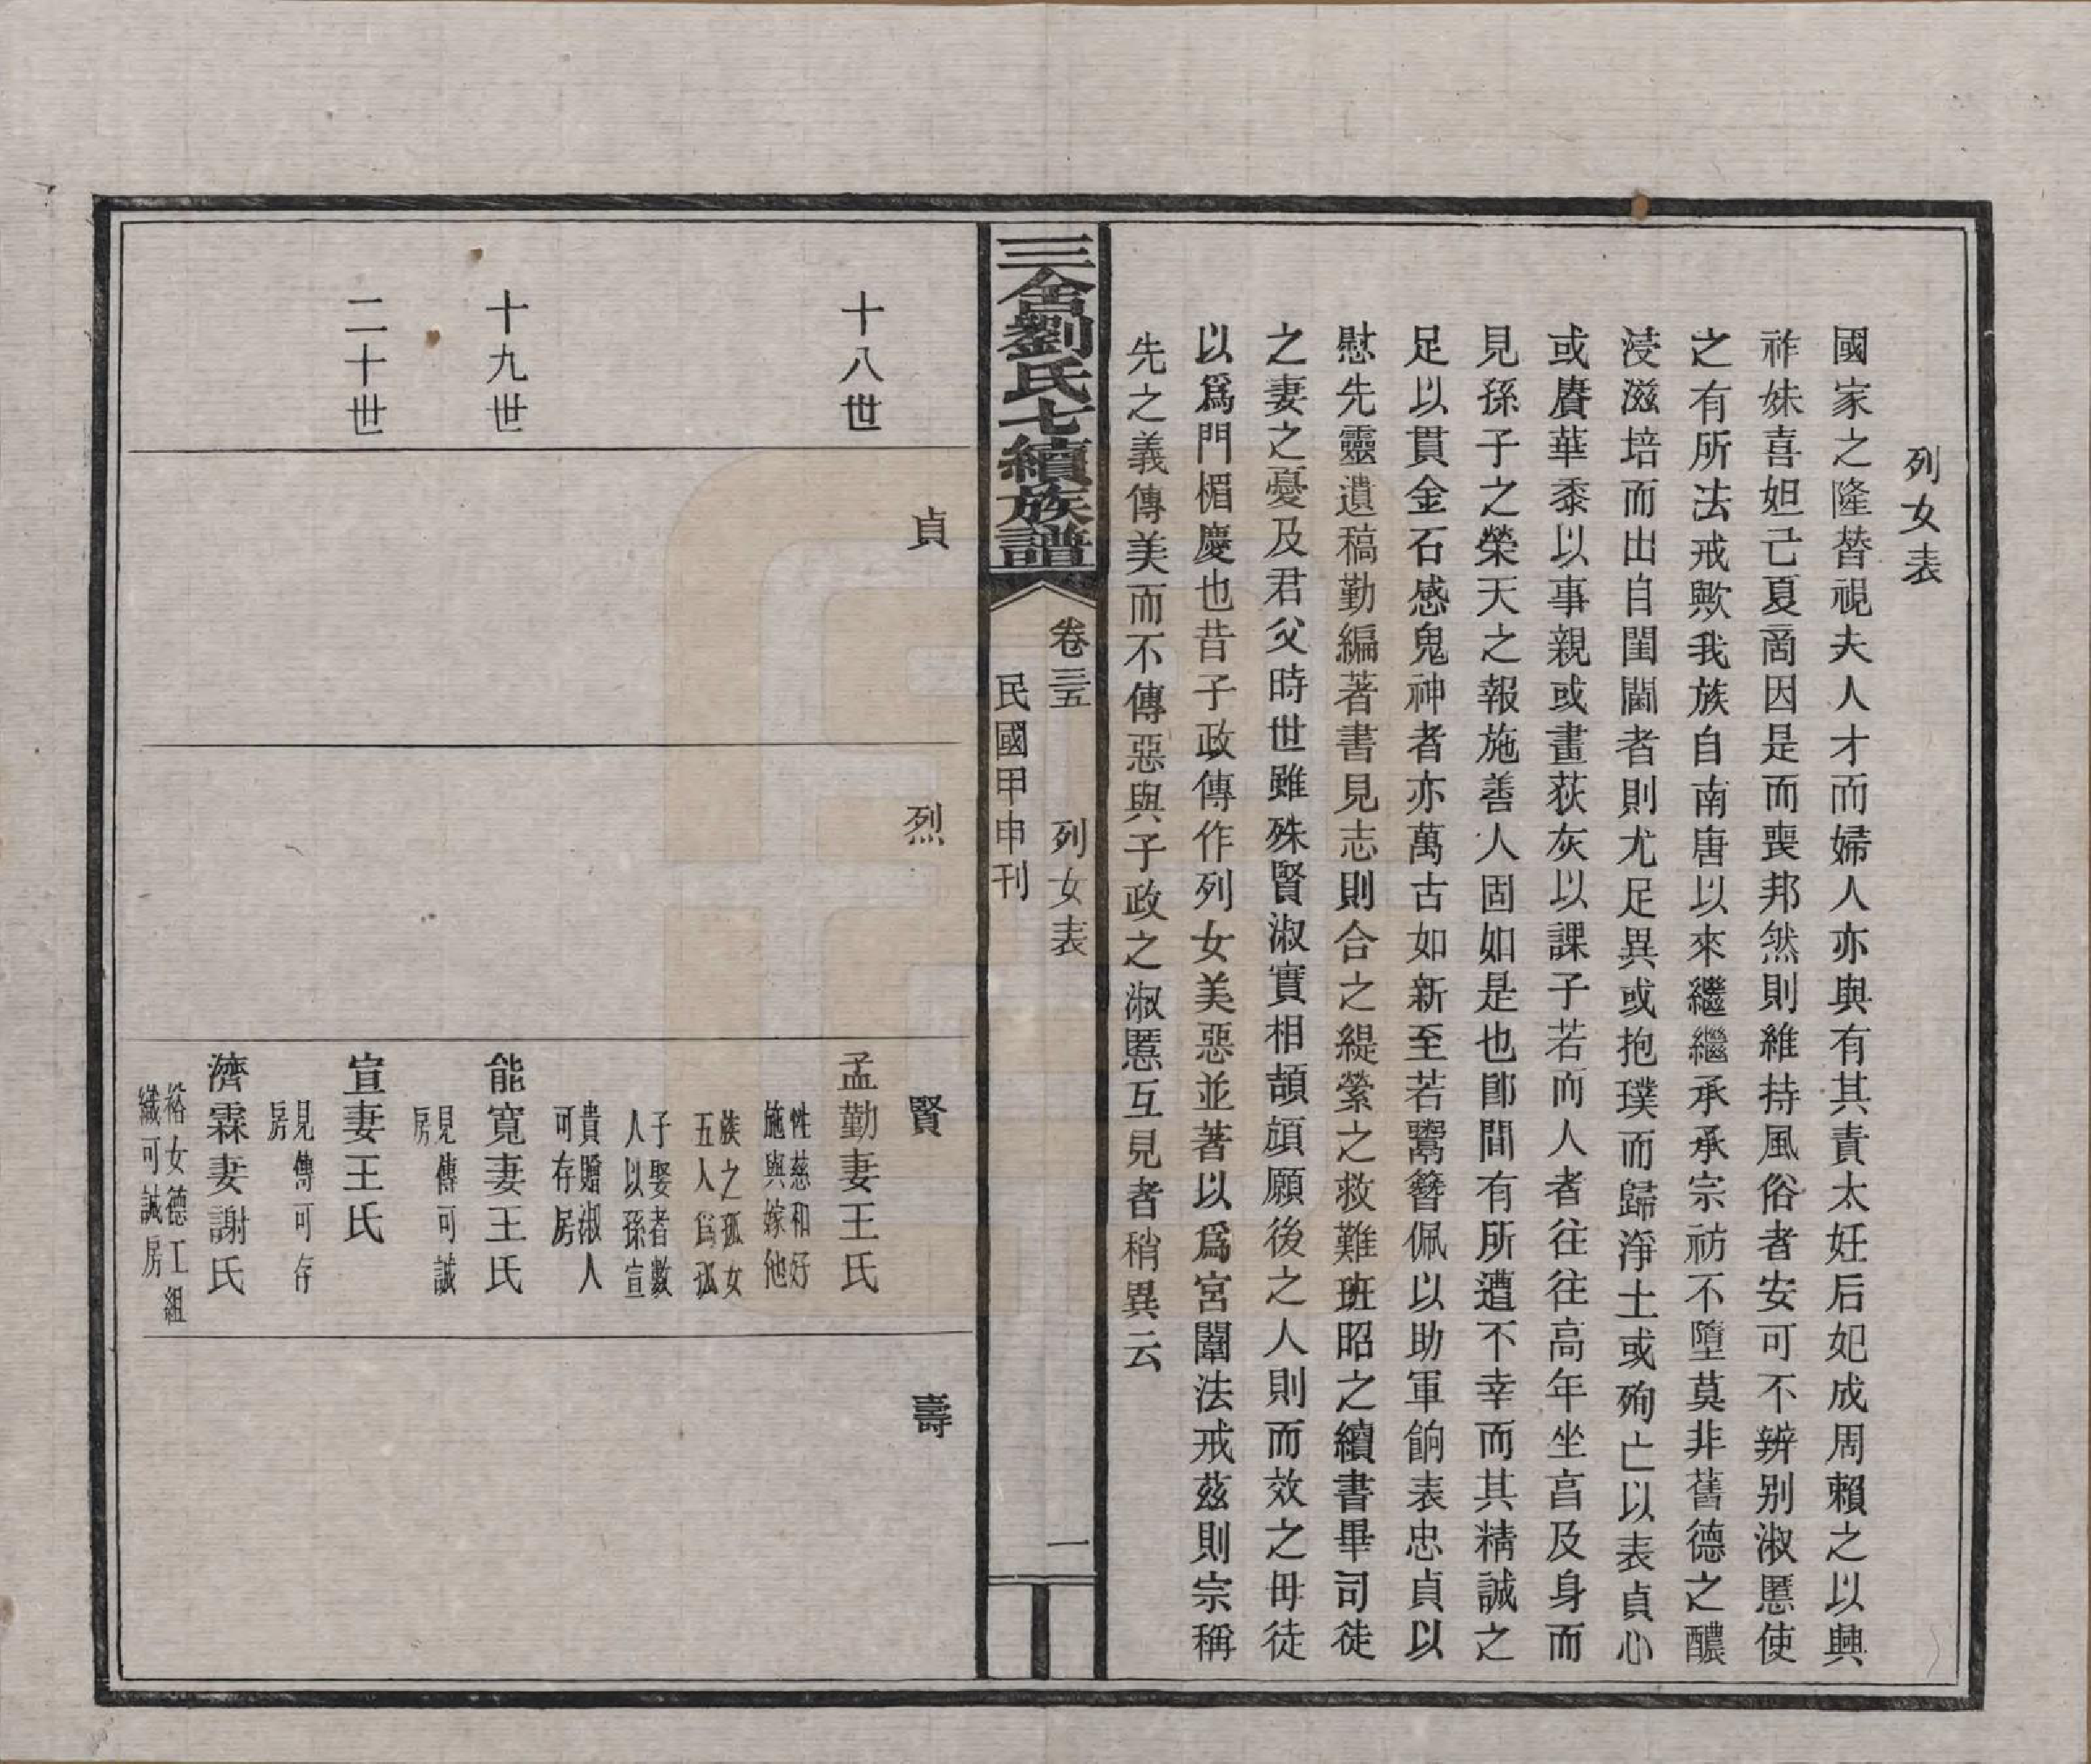 列女表
國家之隆替視夫人才而婦人亦與有其責太妊后妃成周賴之以興
祚妹喜妲己夏商因是而喪邦然則維持風俗者安可不辨别淑慝使
之有所法戒歟我族自南唐以來繼繼承承宗祊不墮莫非舊德之醲
浸滋培而出自閨閫者則尤足異或抱璞而歸淨土或殉亡以表貞心
或賡華黍以事親或畫荻灰以課子若而人者往往高年坐亯及身而
見孫子之榮天之報施善人固如是也卽間有所遭不幸而其精誠之
足以貫金石感鬼神者亦萬古如新至若鬻簪佩以助軍餉表忠貞以
慰先靈遺稿勤編著書見志則合之緹縈之救難班昭之續書畢司徒
之妻之憂及君父時世雖殊賢淑實相頡頏願後之人則而效之毋徒
以爲門楣慶也昔子政傳作列女美惡並著以爲宮闈法戒茲則宗稱
先之義傳美而不傳惡與子政之淑慝互見者稍異云
三舍劉氏七續族譜
卷三五 列女表 一
民國甲申刊
貞
烈
賢
壽
十八世
孟勤妻王氏
性慈和好
施與嫁他
族之孤女
五人爲孤
子娶者數
人以孫宣
貴贈淑人
可存房
十九世
能寬妻王氏
見傳可誠
房
二十世
宣妻王氏
見傳可存
房
濟霖妻謝氏
裕女德工組
織可誠房